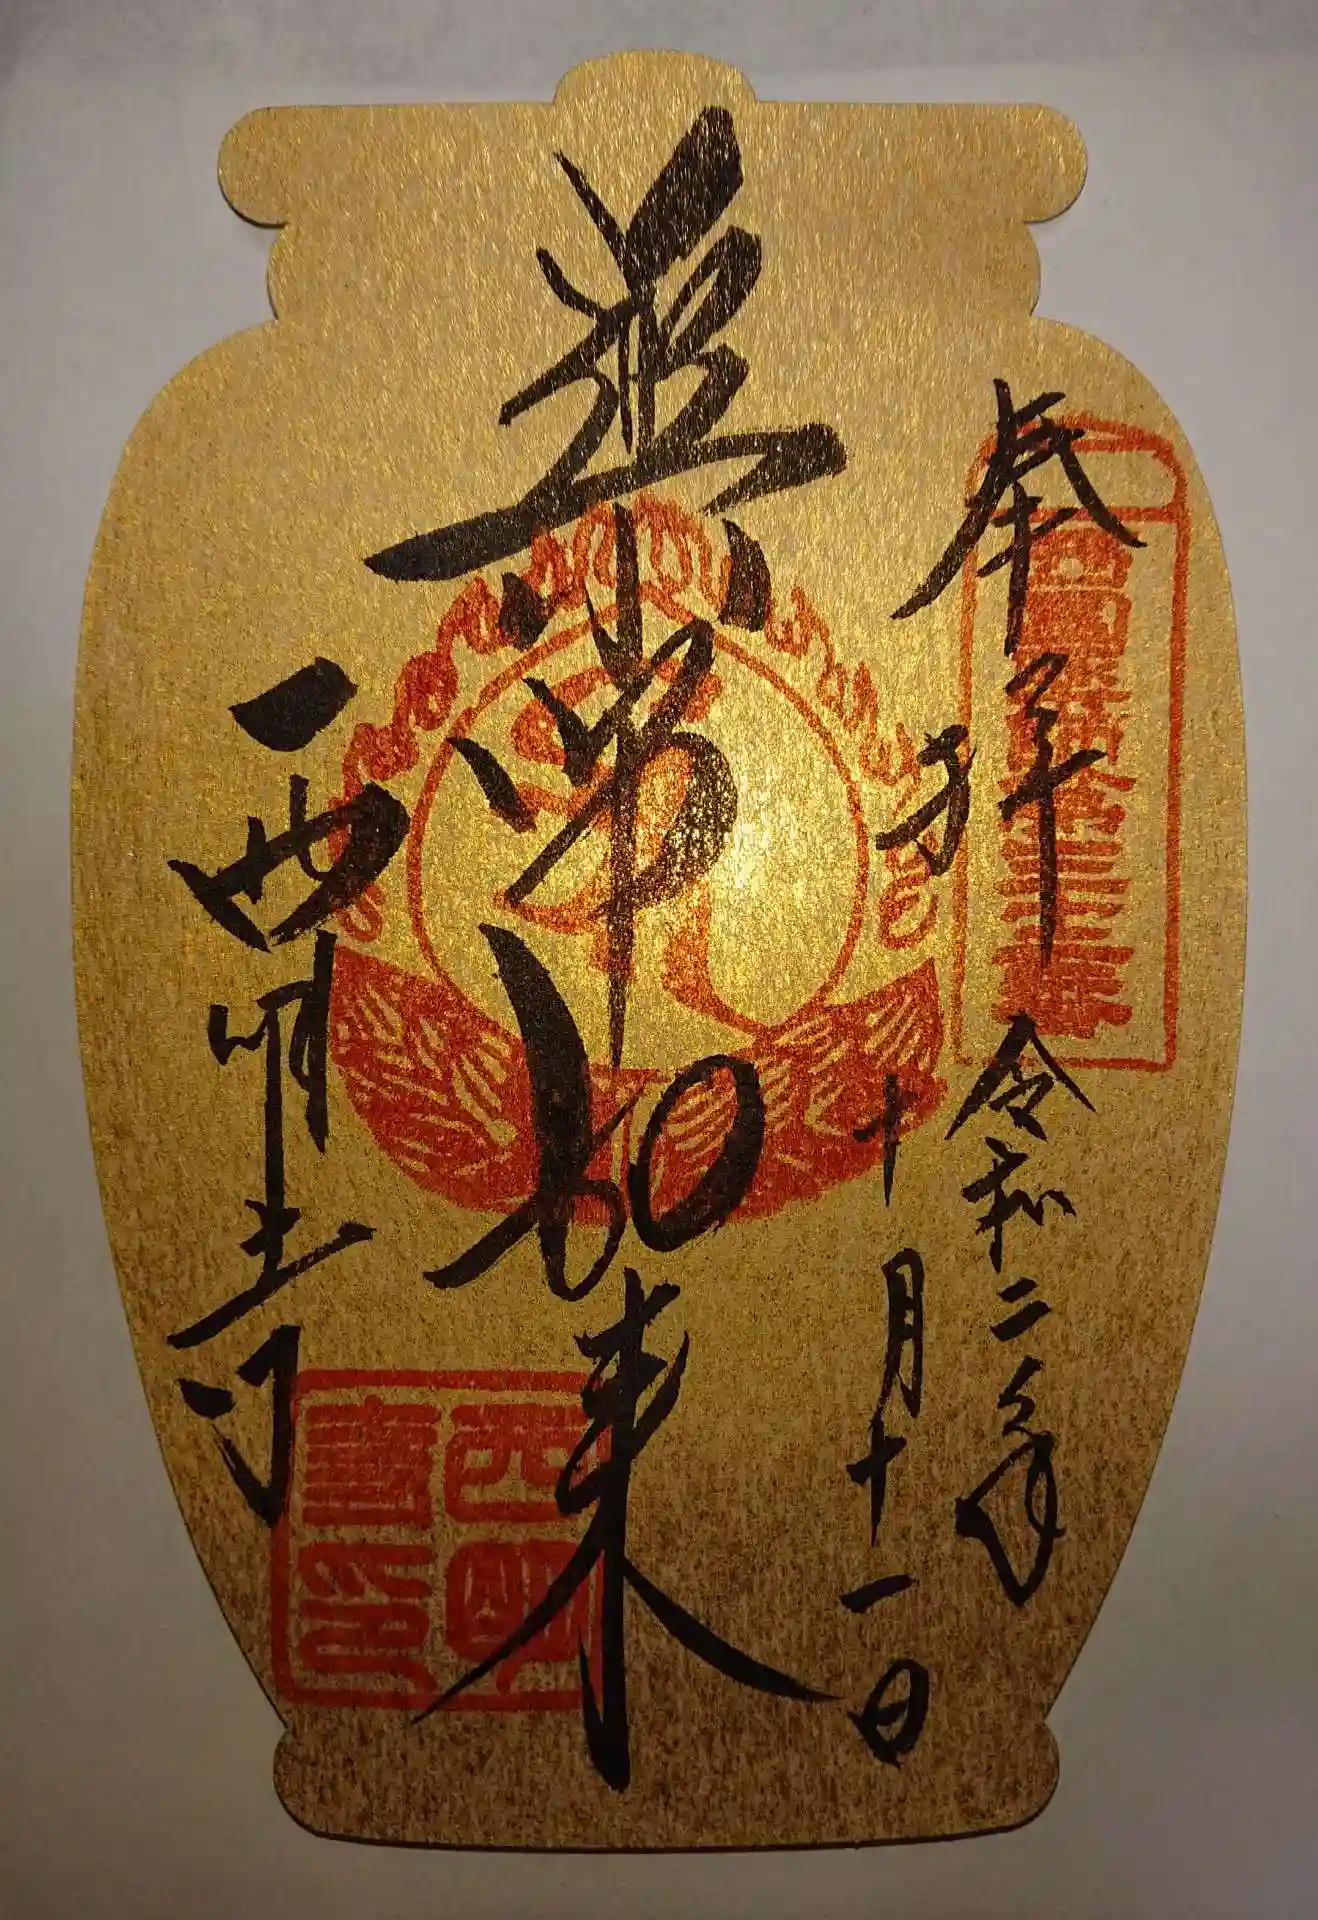 奉拝
令和二年
十月十一日
薬師如来
西明寺
西明寺印